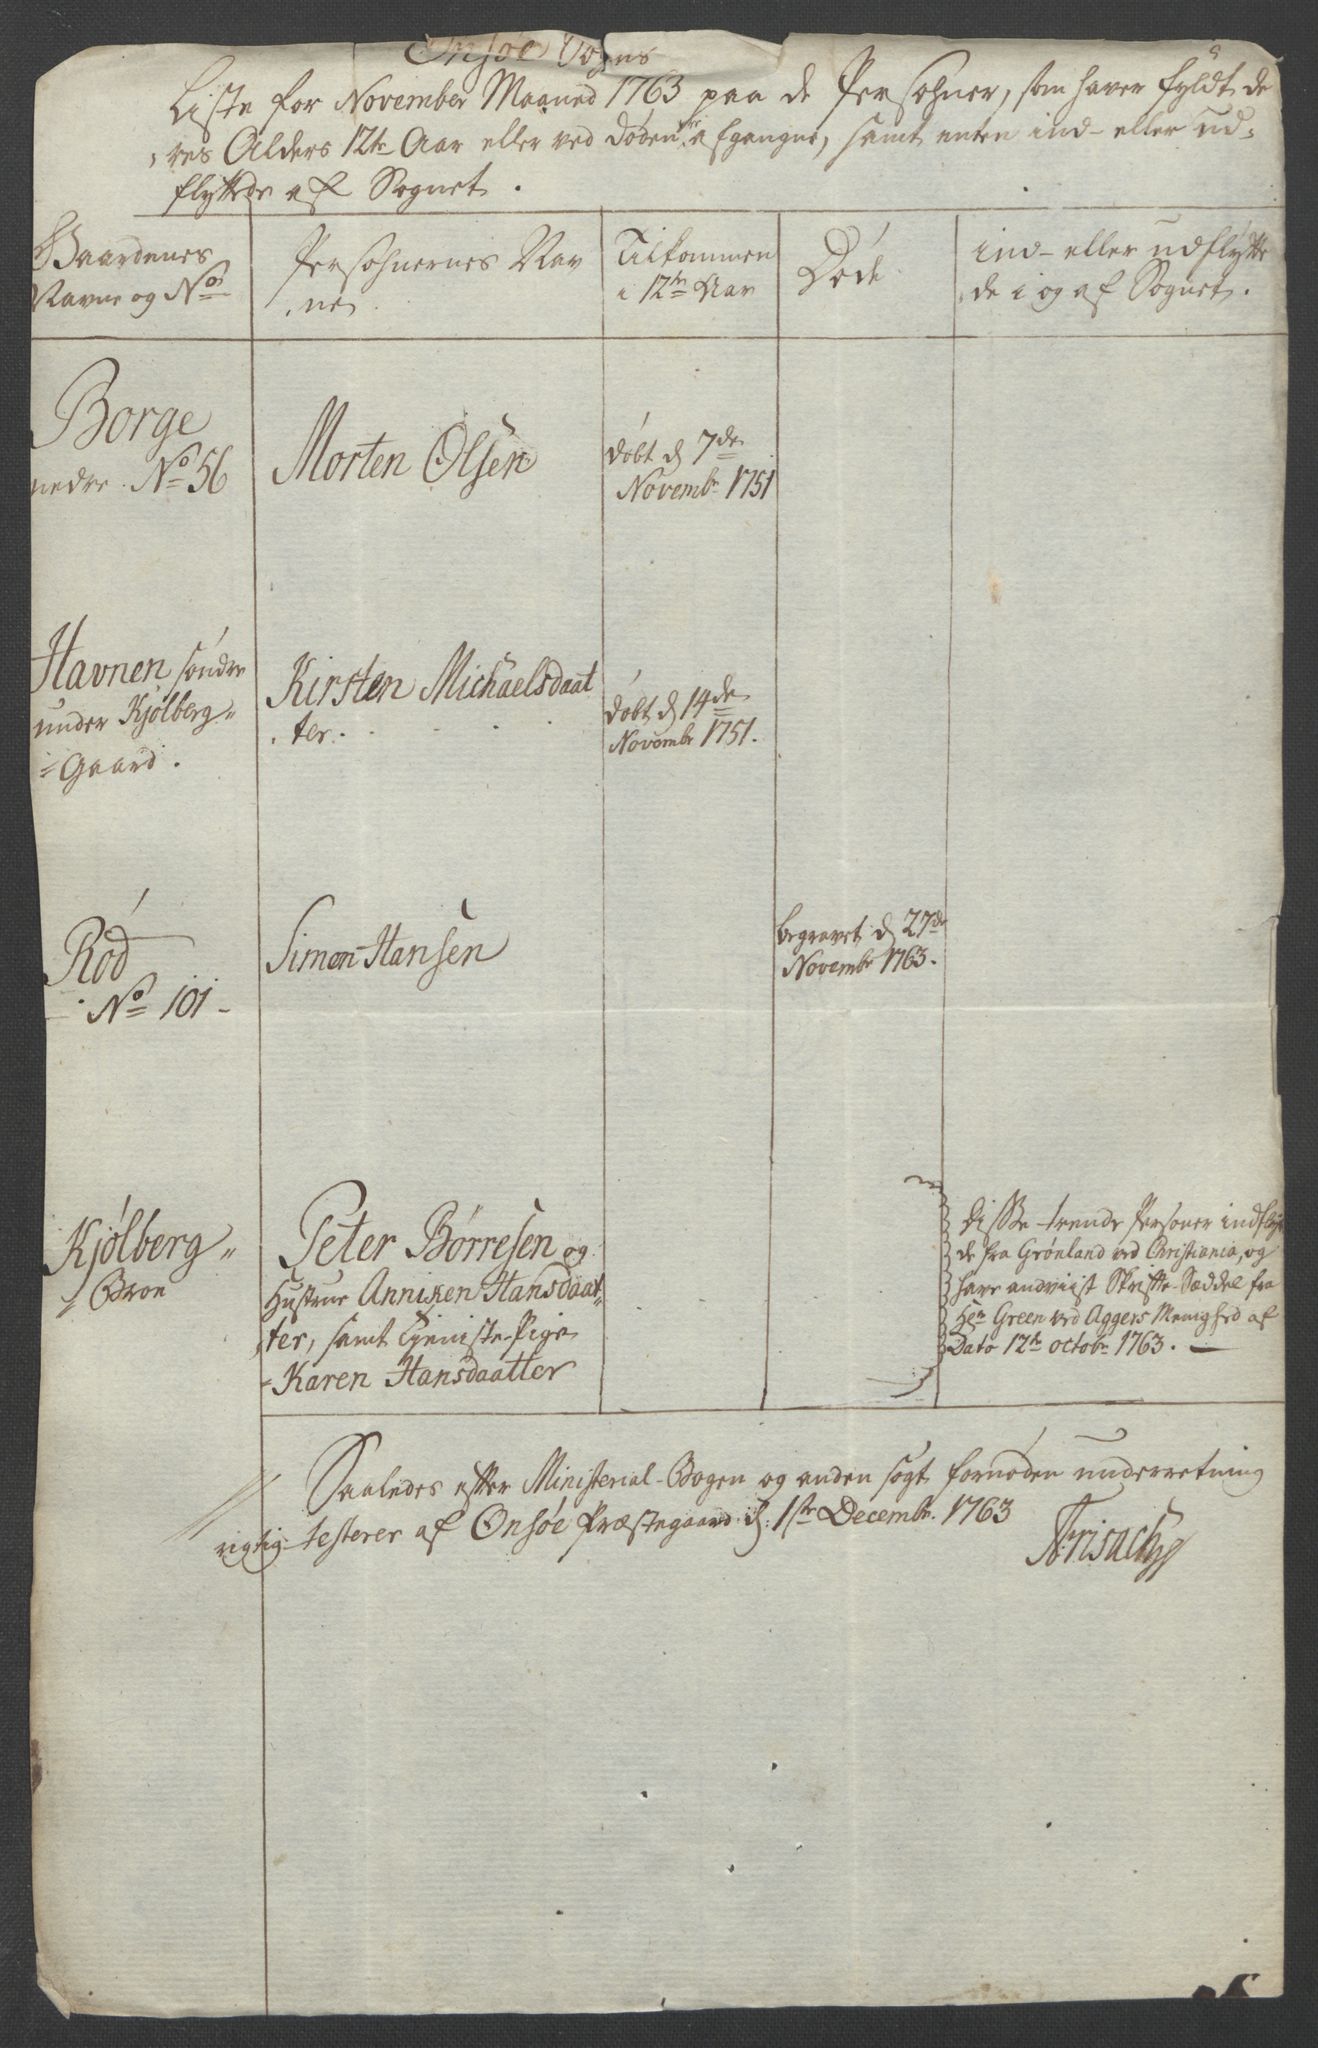 Onsøe Sogns
Liste for November Maaned 1763 paa de Persohner, som haver fyldt de
res Alders 12te Aar eller ved Døden ere afgangne, samt enten ind- eller ud-
flyttede af Sognet.
Gaardenes
Navne og No
Persohnernes Nav
ne
Tilkommen
i 12te Aar
Døde
ind- eller udflytte
de i og af Sognet.
Borge
nedre No 56
Morten Olsen
døbt d 7de
Novembr 1751
Havnen søndre
under Kjølberg-
Gaard.
Kirsten Michaelsdaat
ter.
døbt d 14de
Novembr 1751.
Rød
No 101
Simon Hansen
begravet d 27de
Novembr 1763.
Kjølberg-
Broe
Peter Børresen og
Hustrue Anniken Hansdaat-
ter, samt Tieniste-Pige
Karen Hansdaatter
disse trende Personer indflyt
de fra Grønland ved Christiania, og
have andviist Skrifte-Sæddel fra
Hr Green ved Aggers Menighed af
Dato 12te octobr 1763.
Saaledes efter Ministerial-Bogen og anden søgt fornøden underretning
rigtig testerer af Onsøe Præstegaard d: 1ste Decembr. 1763